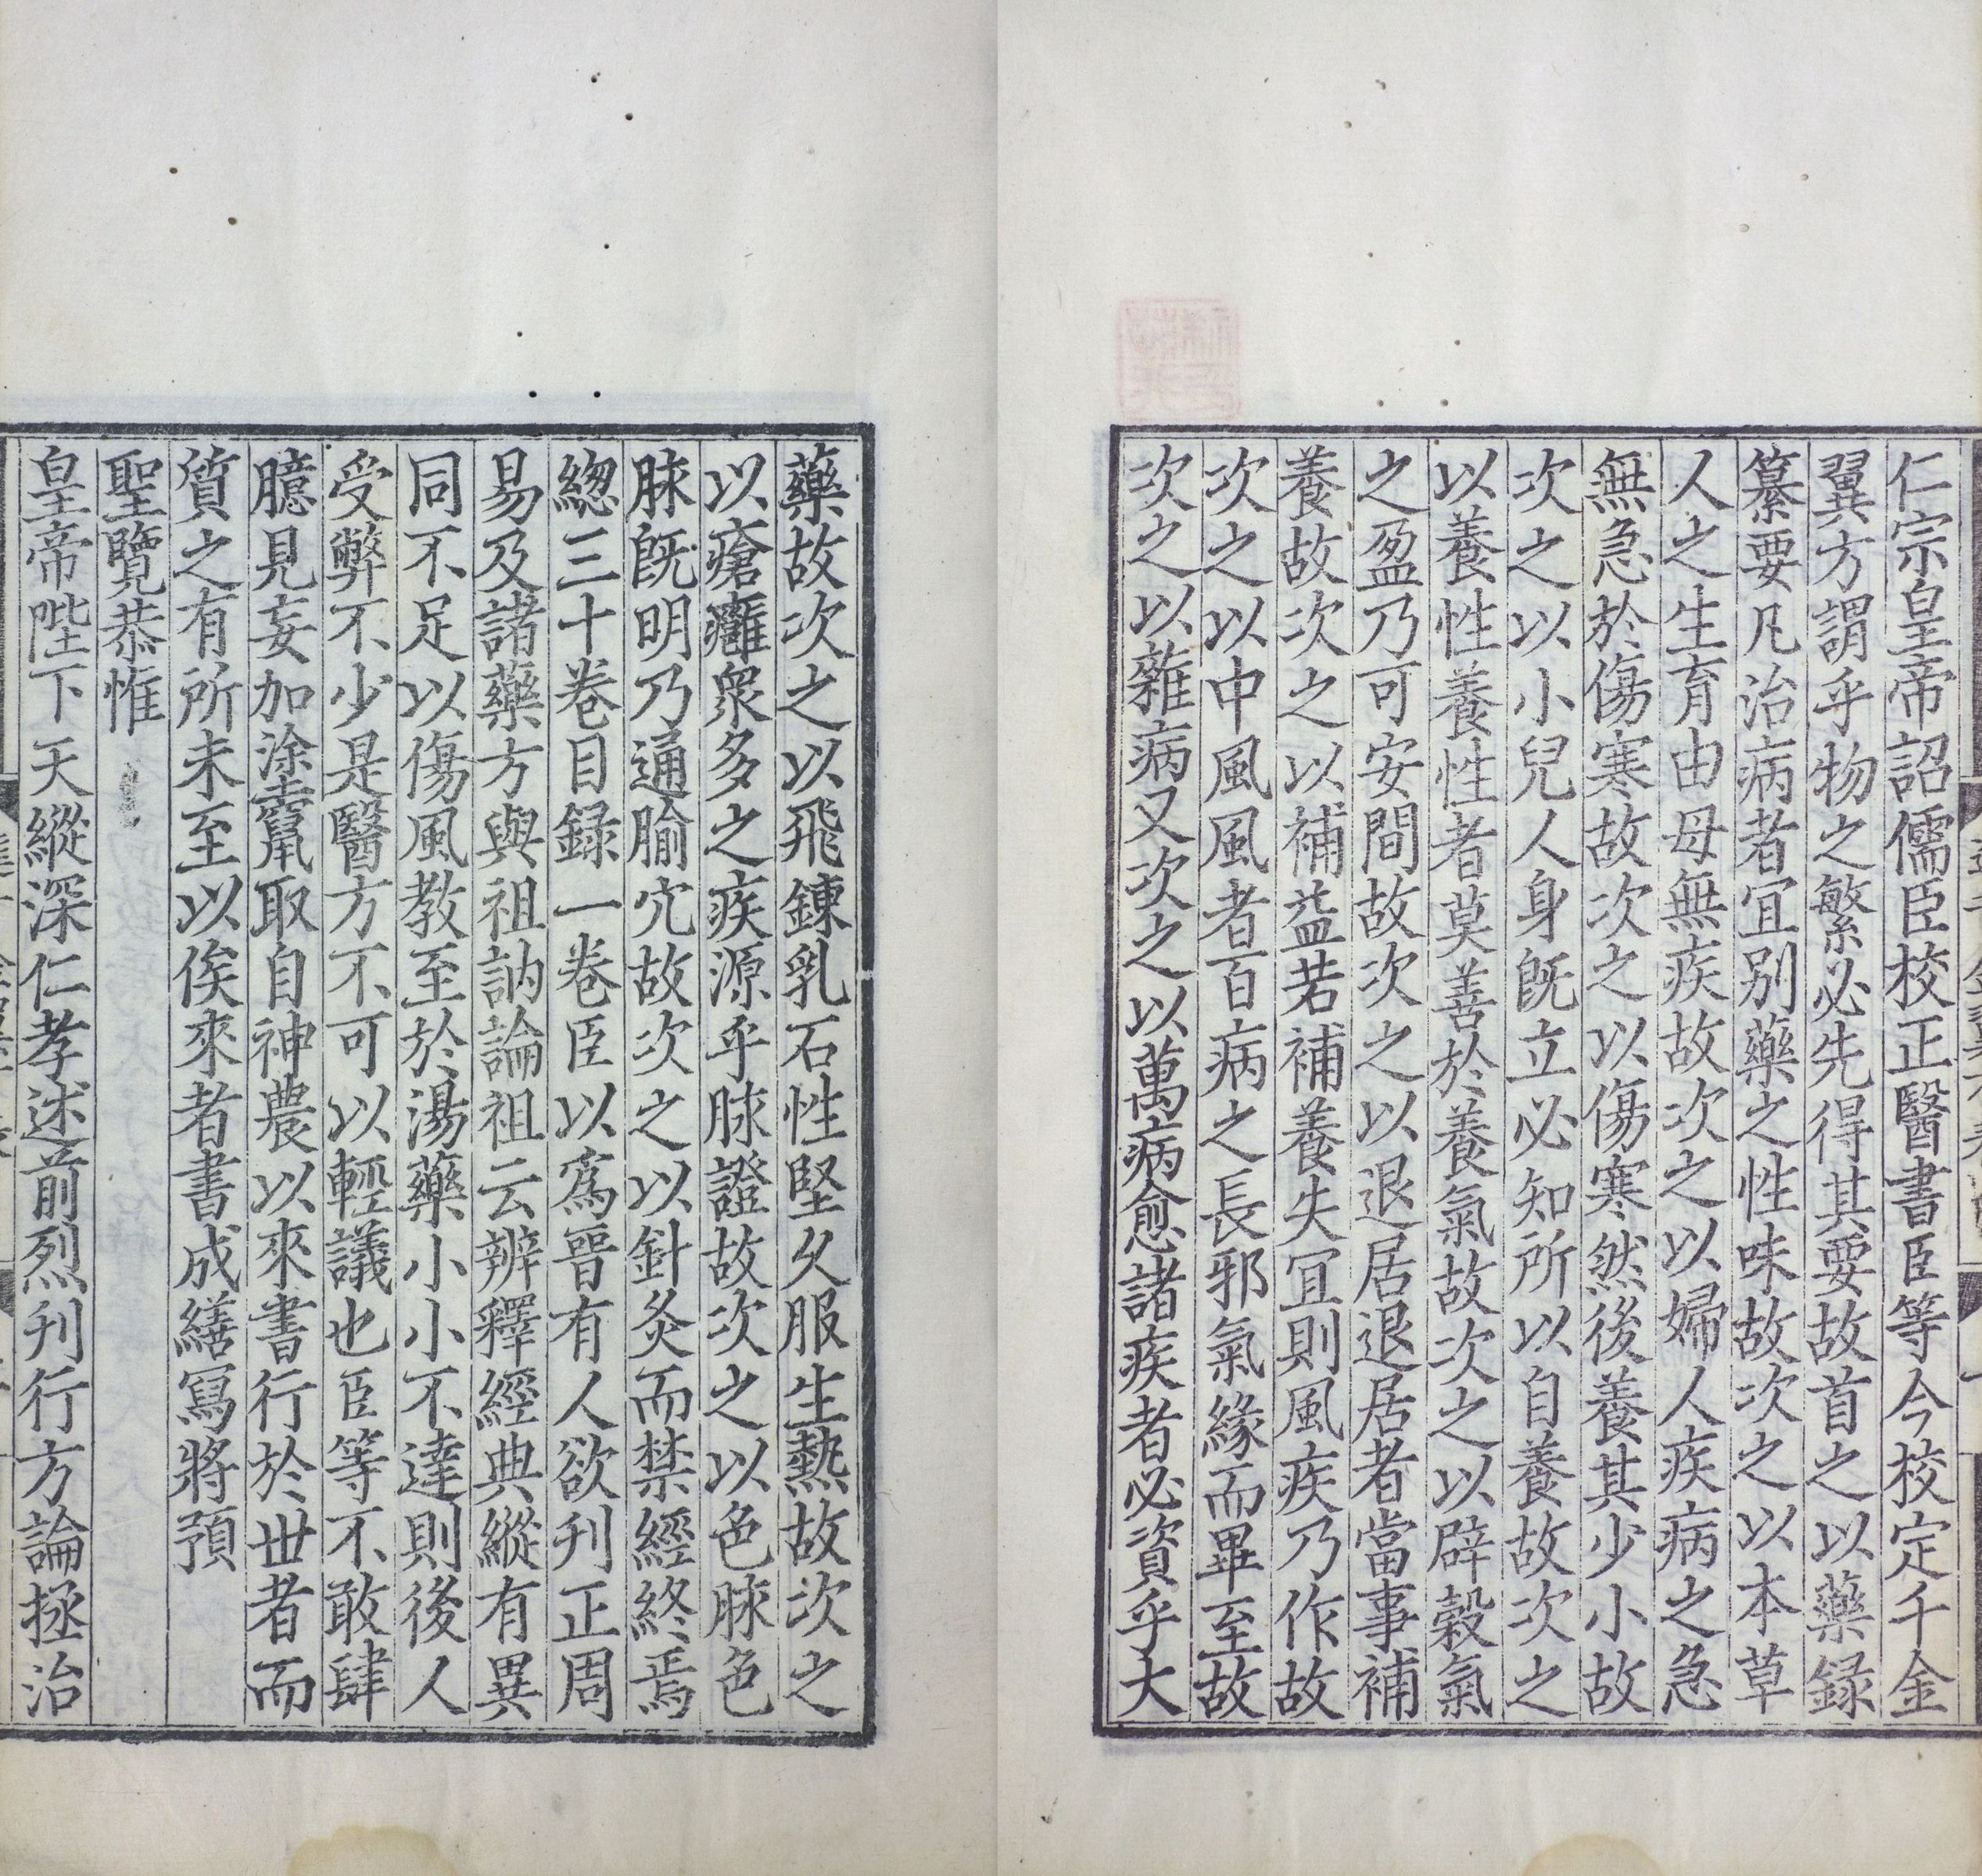 仁宗皇帝詔儒臣校正醫書臣等今校定千金
翼方謂乎物之繁必先得其要故首之以藥録
纂要凡治病者宜别藥之性味故次之以本草
人之生育由母無疾故次之以婦人疾病之急
無急於傷寒故次之以傷寒然後養其少小故
次之以小兒人身旣立必知所以自養故次之
以養性養性者莫善於養氣故次之以辟穀氣
之盈乃可安間故次之以退居退居者當事補
養故次之以補益若補養失宜則風疾乃作故
次之以中風風者百病之長邪氣緣而畢至故
次之以雜病又次之以萬病愈諸疾者必資乎大
藥故次之以飛鍊乳石性堅久服生熱故次之
以瘡癰衆多之疾源乎脉證故次之以色脉色
脉旣明乃通腧穴故次之以針灸而禁經終焉
緫三十卷目録一卷臣以爲晉有人欲刋正周
易及諸藥方與祖訥論祖云辨釋經典縱有異
同不足以傷風教至於湯藥小小不達則後人
受弊不少是醫方不可以輕議也臣等不敢肆
臆見妄加塗竄取自神農以來書行於世者而
質之有所未至以俟來者書成繕冩將預
聖覽恭惟
皇帝陛下天縱深仁孝述前烈刋行方論拯治